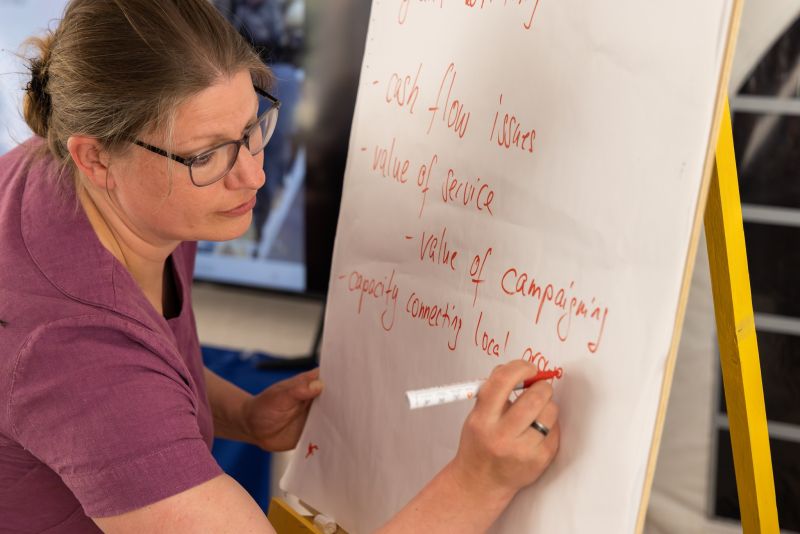 - cash flow issues
- value of service
- value of campaigning
- capacity connecting local